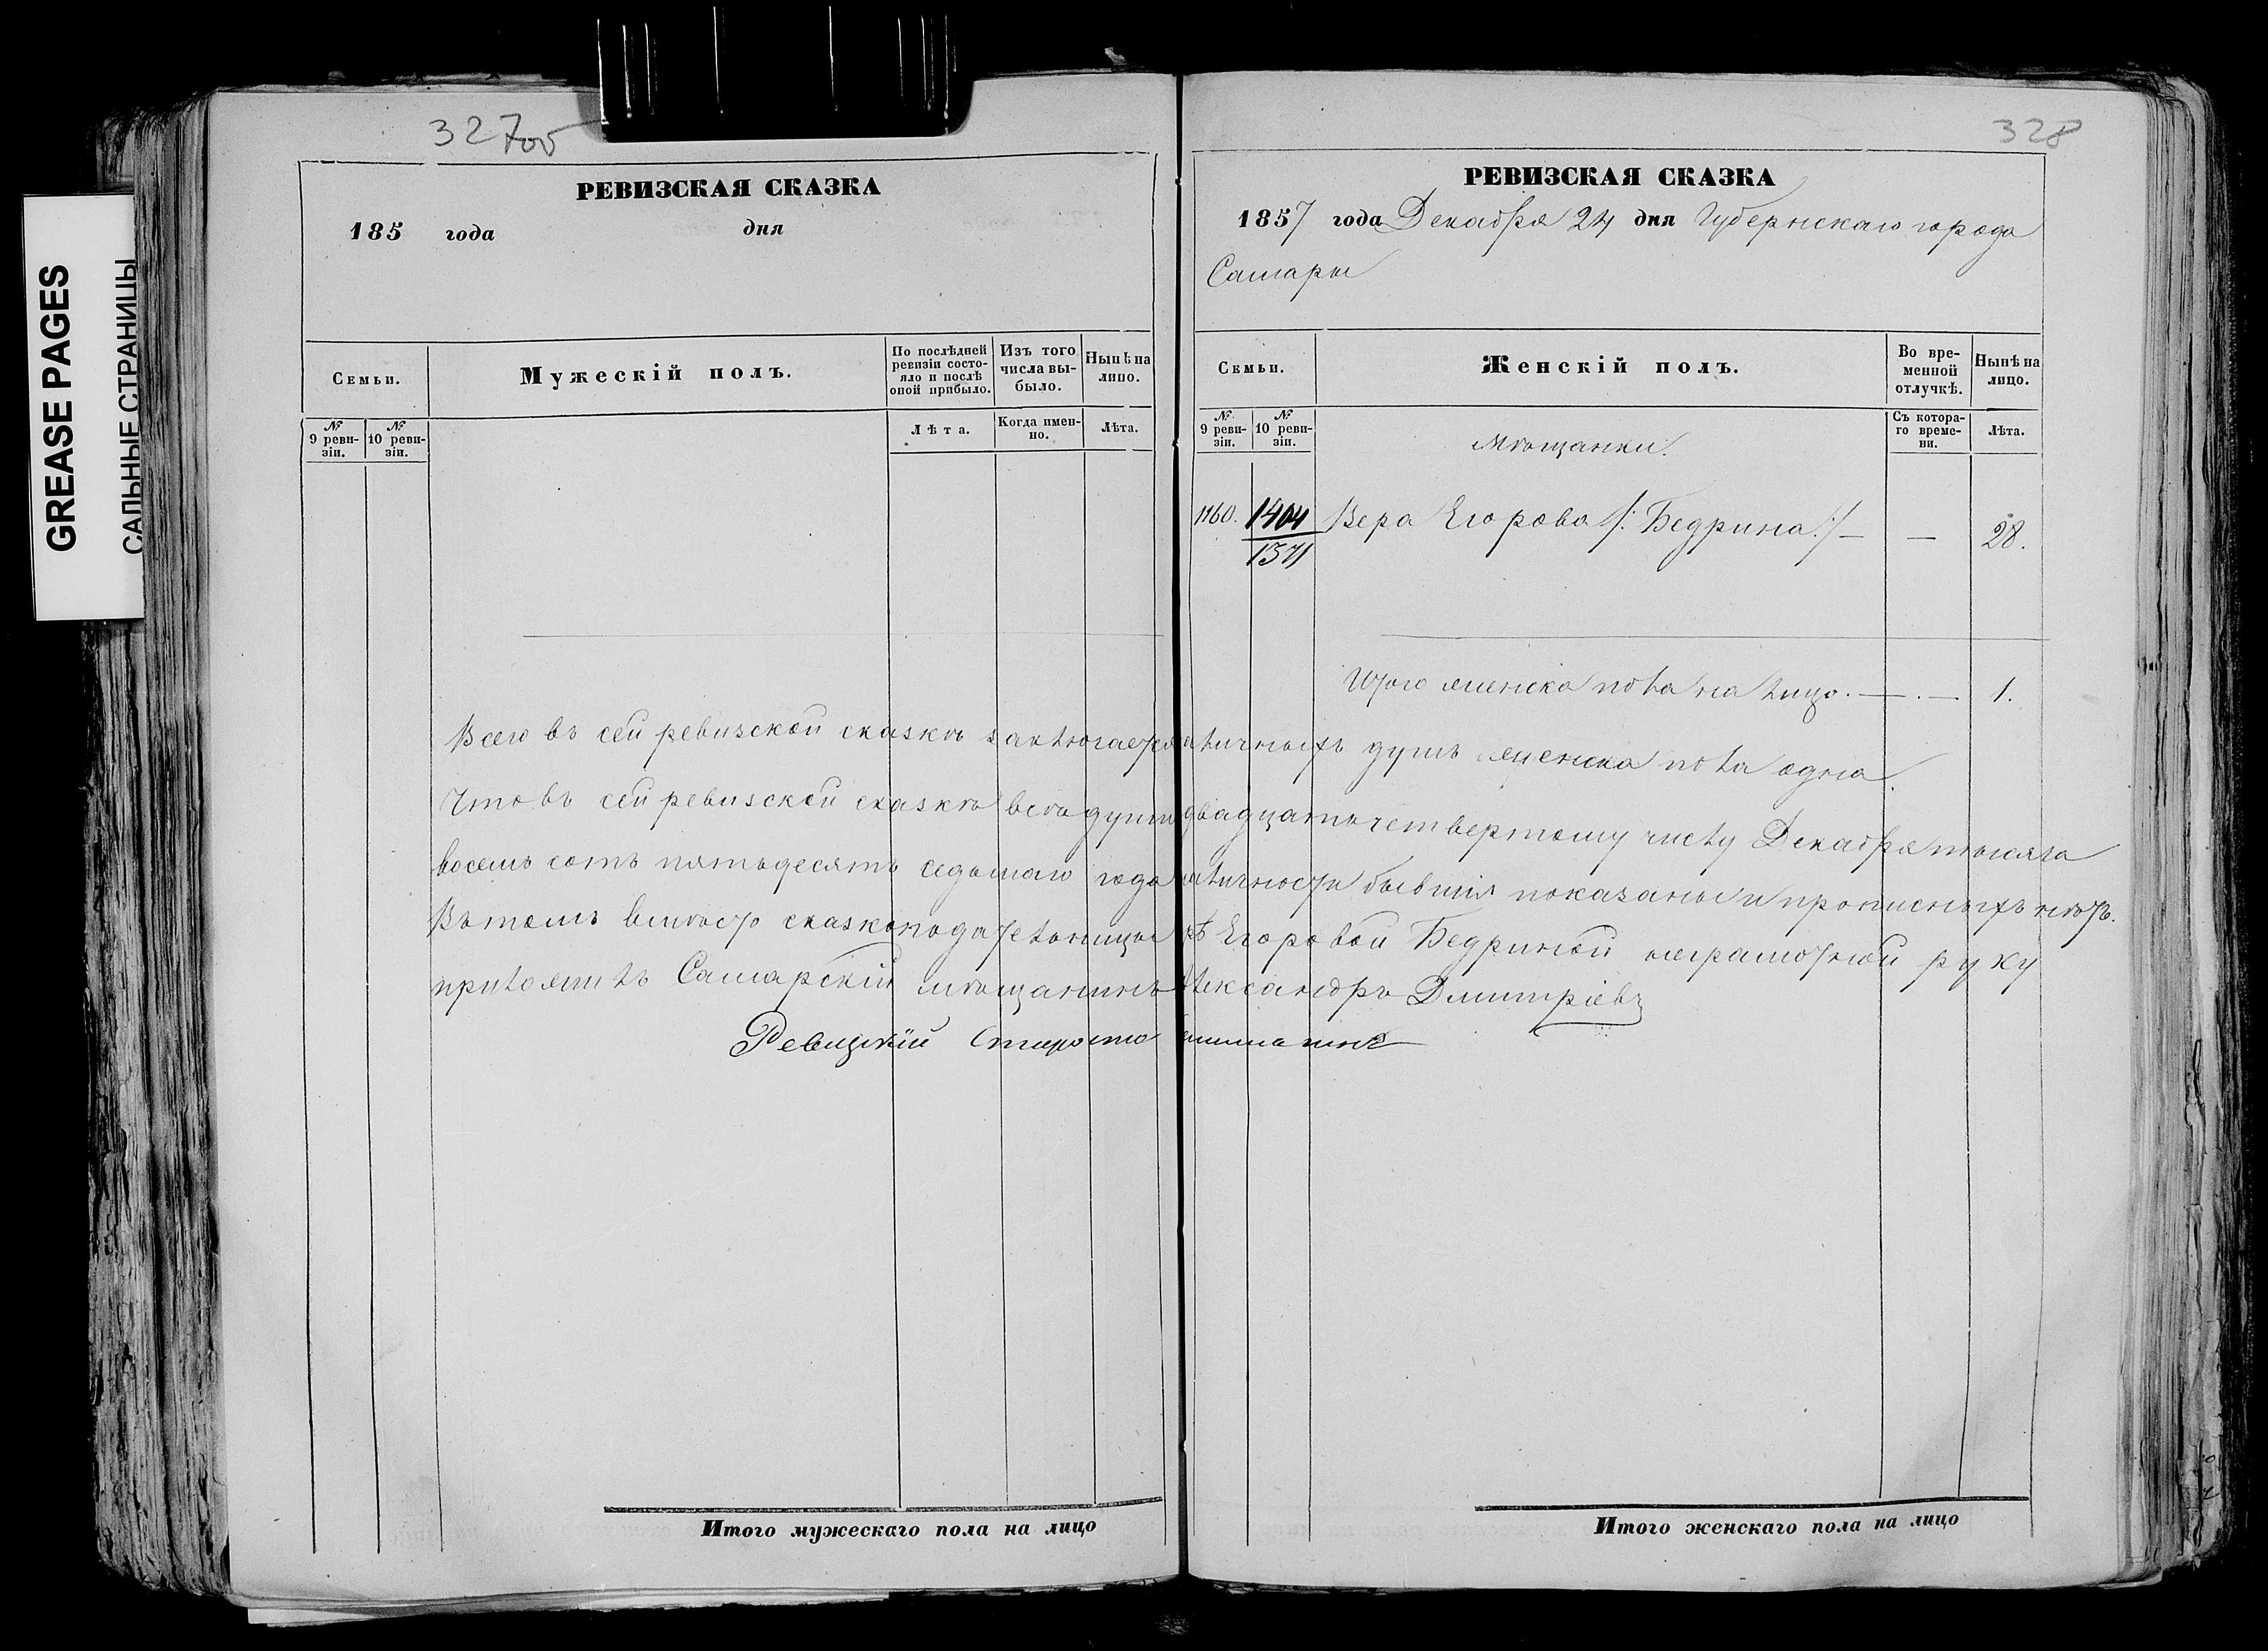 GREASE PAGES
САЛЬНЫЕ СТРАНИЦЫ
327об
РЕВИЗСКАЯ СКАЗКА
185 года дня
Семьи.
Мужескій полъ.
По послѣдней ревизіи состояло и послѣ оной прибыло.
Изъ того числа выбыло.
Нынѣ на лицо.
№ 9 ревизіи.
№ 10 ревизіи.
Лѣта.
Когда именно.
Лѣта.
328
РЕВИЗСКАЯ СКАЗКА
1857 года Декабря 24 дня Губернскаго города
Самары
Семьи.
Женскій полъ.
Во временной отлучкѣ.
Нынѣ на лицо.
№ 9 ревизіи.
№ 10 ревизіи.
Мѣщанки.
Съ котораго времени.
Лѣта.
1160. 1404 Вера Егорова /: Бедрина :/ — — 28.
1371
Итого женска пола на лицо. — . — 1.
Всего въ сей ревизской сказкѣ заключается наличныхъ душъ женска пола одна.
Что въ сей ревизской сказкѣ всѣ души двадцать четвертому числу Декабря тысяча
восемь сотъ пятьдесятъ седьмаго года наличности бывшія показаны и прописныхъ нѣтъ.
Въ томъ вмѣсто сказкоподательницы Егоровой Бедриной неграмотной руку
приложилъ Самарскій мѣщанинъ Александръ Дмитріевъ
Ревизскій Староста
Итого мужескаго пола на лицо
Итого женскаго пола на лицо